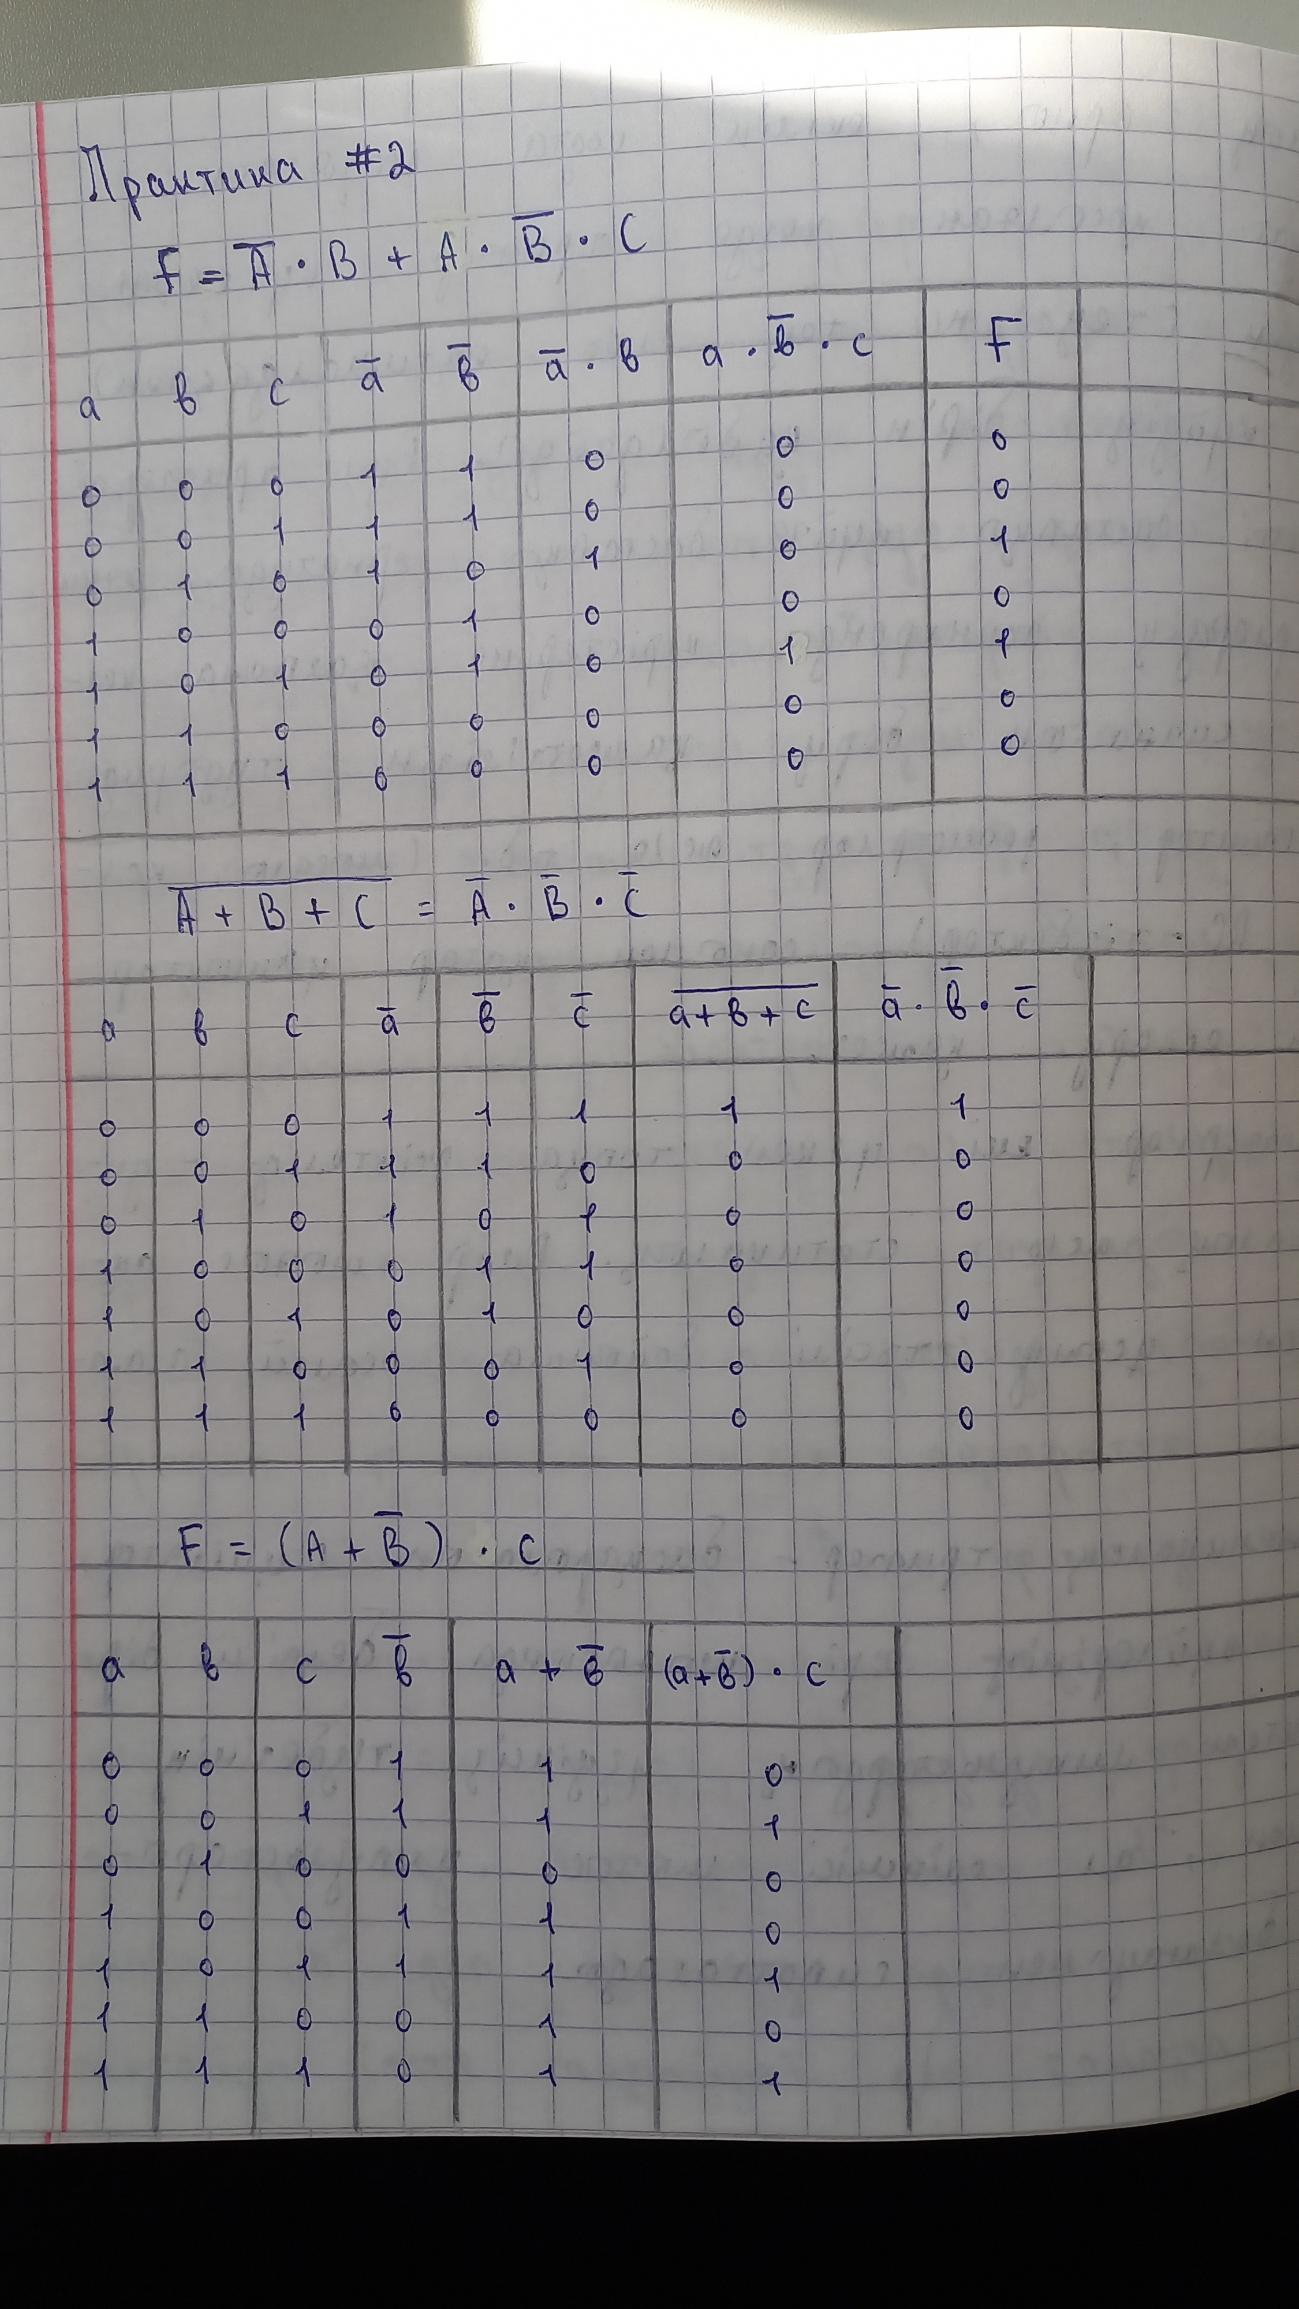 Практика #2
F = A̅ · B + A · B̅ · C
a в c a̅ в̅ a̅ · в a · в̅ · c F
0 0 0 1 1 0 0 0
0 0 1 1 1 0 0 0
0 1 0 1 0 1 0 1
1 0 0 0 1 0 0 0
1 0 1 0 1 0 1 1
1 1 0 0 0 0 0 0
1 1 1 0 0 0 0 0
A̅ ̅+̅ ̅B̅ ̅+̅ ̅C̅ = A̅ · B̅ · C̅
a в c a̅ в̅ c̅ a̅+̅в̅+̅c̅ a̅ · в̅ · c̅
0 0 0 1 1 1 1 1
0 0 1 1 1 0 0 0
0 1 0 1 0 1 0 0
1 0 0 0 1 1 0 0
1 0 1 0 1 0 0 0
1 1 0 0 0 1 0 0
1 1 1 0 0 0 0 0
F = (A + B̅) · C
a в c в̅ a + в̅ (a+в̅) · c
0 0 0 1 1 0
0 0 1 1 1 1
0 1 0 0 0 0
1 0 0 1 1 0
1 0 1 1 1 1
1 1 0 0 1 0
1 1 1 0 1 1